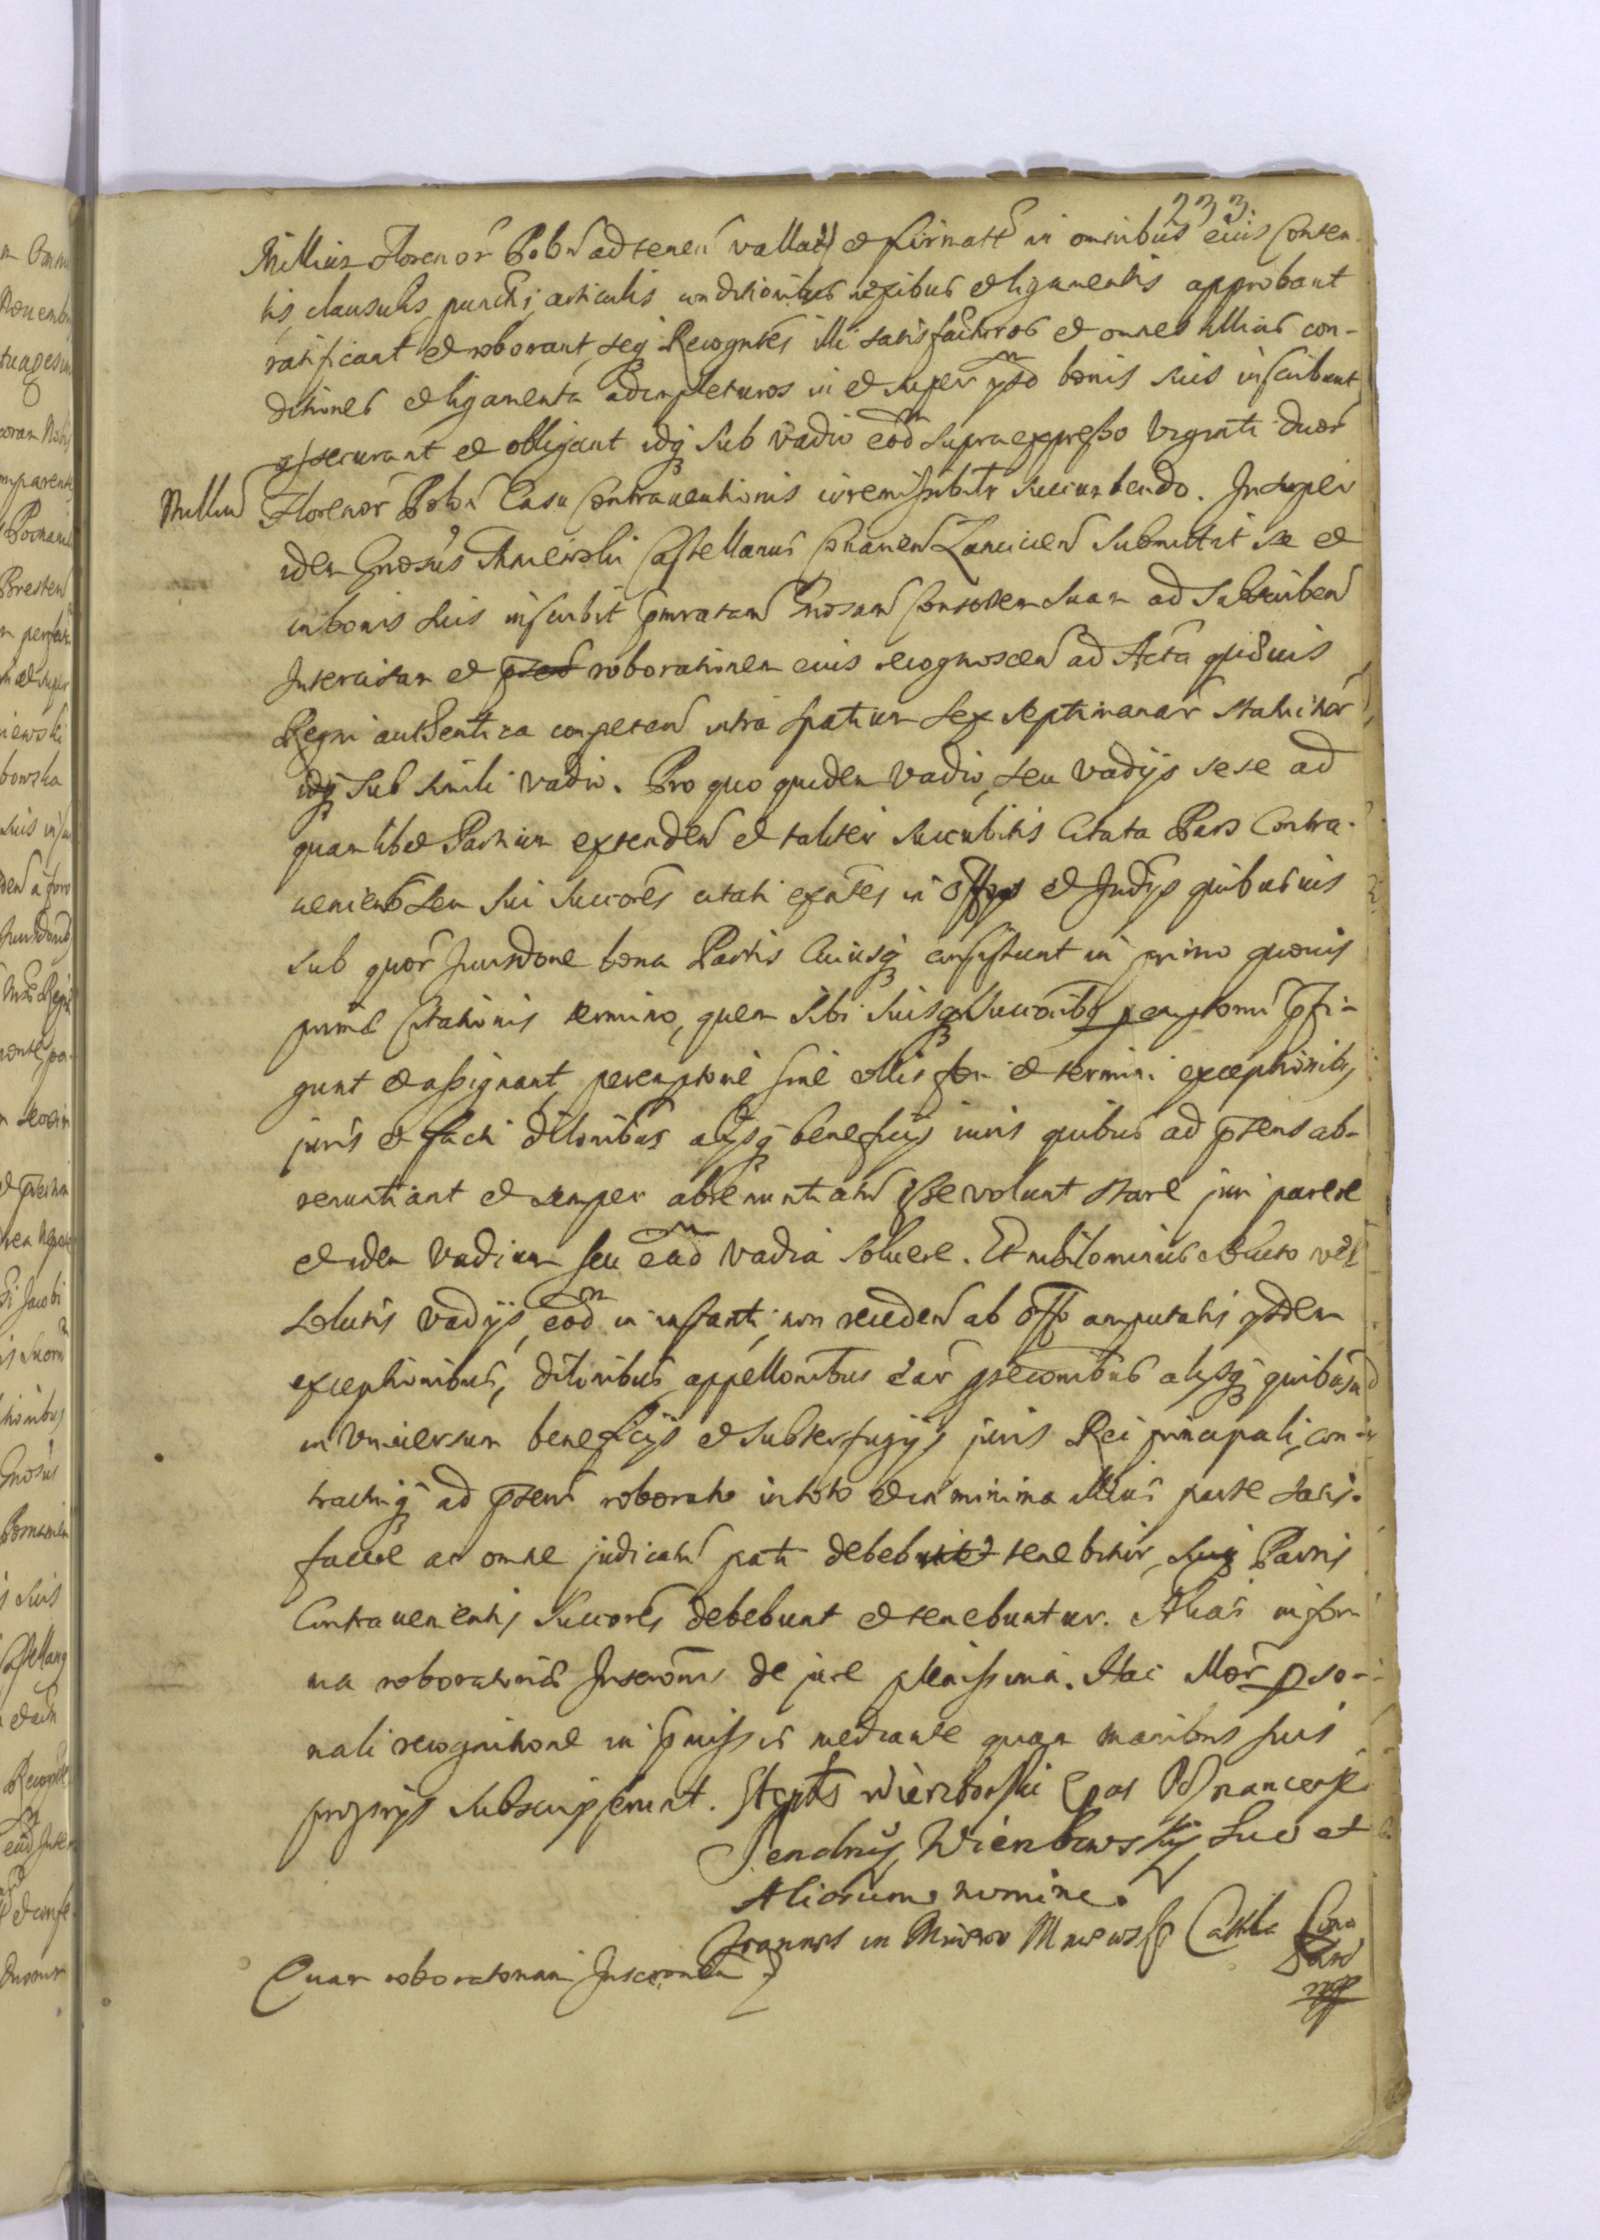 233
Millium Floren̄or Polon̄ ad tenen̄ vallat et firmat in omnibus eius Conten-
tis, clausulis, punctis, articulis conditionibus nexibus et ligamentis approbant
ratificant et roborant, seq Recogntes illi satisfacturos et omnes illius con-
ditiones et ligamenta adimpleturos in et super bonis suis inscribunt
assecurant et obligant idq sub vadio eod supraexpresso Viginti duor
Millium Florenor Polon Casu Contraventionis irremissibiliter succumbendo. Insuper
idem Gnosus Mniewski Castellanus Conarien Lancicien submittit se et
in bonis suis inscribit Gnosam Consortem suam ad subscriben
Intercisam et roborationem eius recognoscen ad Acta quævis
Regni authentica competen intra spatium sex septimanar
idq sub simili vadio. Pro quo quidem vadio, seu vadijs sese ad
quamlibet Partium extenden et taliter succubitis Citata Pars Contra-
veniens seu sui Succores citati exntes in Offijs et Judijs quibusvis
sub quor Jurisdone bona Partis Cuiusq consistunt in primo quovis
primæ Citationis termino, quem sibi suisq Succoribs præfi-
gunt et assignant, peremptorie sine ollis fori et termini exceptionibs,
juris et facti dilonibus alijsq beneficijs iuris quibus ad præns ab-
renuntiant et semper abrenuntiatu esse volunt stare juri parere
et idem vadium seu ead vadia soluere. Et nihilominus soluto vel
solutis vadijs, eod in instanti, non receden ab Offo amputatis
exceptionibus, dilonibus appellonibus ear alijsq quibusuis
in Universum beneficijs et subterfugijs juris Rei principali, con-
tractuiq ad præns roborato in toto et in minima illius parte satis-
facere ac omne judicatu pati debebit et tenebitur, suiq Partis
Contravenientis Succores debebunt et tenebuntur. Alias in for-
ma roboratoriæ Inscronis de jure plenissima. Hac illor perso-
nali recognitione in præmissis mediante quam manibus suis
propriis subscripserunt. Stephs Wierzbowski Epus Posnaniensis
Jendrzy Wierzbowsky Suo et
Aliorum nomine.
Joannes in Mniewo Mniewsky Castela Cona
Lanc
mp
Quam roboratoriam Inscronem